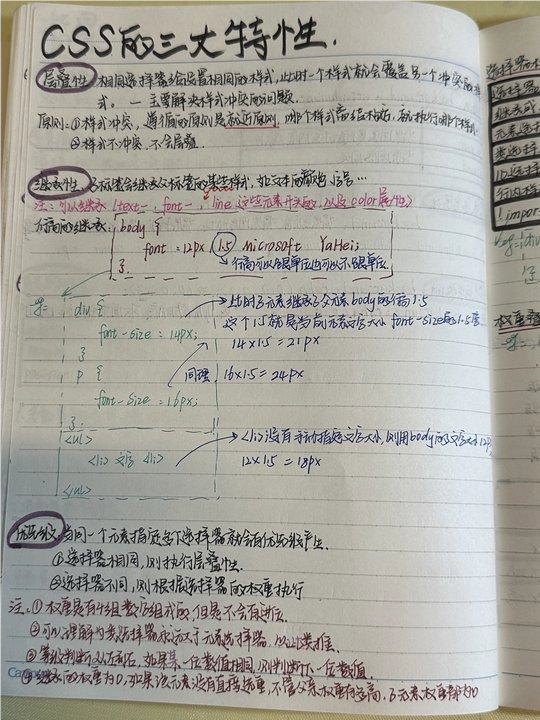 CSS的三大特性.
层叠性 相同选择器给设置相同的样式,此时一个样式就会覆盖另一个冲突的样
式。一主要解决样式冲突的问题.
原则:①样式冲突,遵循的原则是就近原则.哪个样式离结构近,就执行哪个样式.
②样式不冲突,不会层叠.
继承性 子标签会继承父标签的某些样式,如文本的颜色,字号…
注:可以继承(text-,font-,line这些元素开头的,以及color属性)
行高的继承: body {
font:12px 1.5 Microsoft YaHei;
}
行高可以跟单位也可以不跟单位.
eg: div {
→此时子元素继承了父元素body的行高1.5
font-size:14px;
这个1.5就是当前元素文字大小font-size的1.5倍
14x1.5=21px
}
p {
同理. 16x1.5=24px
font-size:16px;
}
<ul>
→<li>没有手动指定文字大小,则用body的文字大小12px
<li>文字<li>
12x1.5=18px
<ul>
优先级 当同一个元素指定多个选择器,就会有优先级产生.
①选择器相同,则执行层叠性.
②选择器不同,则根据选择器的权重执行
注:①权重是有4组数字组成的,但是不会有进位.
②可以理解为类选择器永远大于元素选择器,以此类推.
③等级判断从左到右,如果某一位数值相同,则判断下一位数值.
④继承的权重为0,如果该元素没有直接选中,不管父亲权重有多高,子元素权重都为0
选择器
继承或
元素选择
类选择
ID选择
行内样
!impor
eg: div
权重叠
eg: